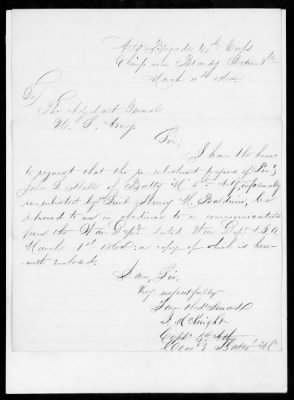 Arty Brigade 6th Corps
Camp near Brandy Station Va
March 4th 1864
To
The Adjutant General
U. S. Army
Sir,
I have the honor
to request that the re-enlistment papers of
John L. Hall of Batty "M" 5th Arty, informally
re-enlisted by Lieut Henry M. Baldwin, be
returned to me in obedience to a communication
from the War Dept. dated War Dept A.G.O.
March 1st 1864: a copy of which is here-
with enclosed.
I am, Sir,
Very respectfully
Your Obdt Servant
J. McKnight
Capt. 5th Arty
Com'g Batty "M"